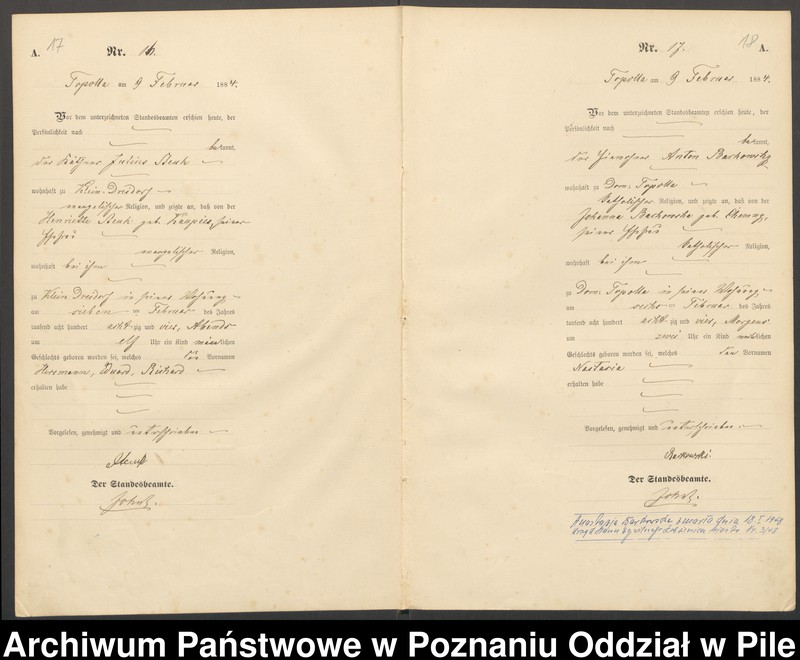 A. 17
Nr. 16.
Topolla am 9 Februar 1884.
Vor dem unterzeichneten Standesbeamten erschien heute, der
Persönlichkeit nach
bekannt,
der Käthner Julius
wohnhaft zu Klein-Dreidorf
evangelischer Religion, und zeigte an, daß von der
Henriette geb. seiner
Ehefrau
evangelischer Religion,
wohnhaft bei ihm
zu Klein Dreidorf in seiner Wohnung
am sieben Februar des Jahres
tausend acht hundert achtzig und vier, Abends
um elf Uhr ein Kind männlichen
Geschlechts geboren worden sei, welches die Vornamen
Herrmann, Eduard, Richard
erhalten habe
Vorgelesen, genehmigt und unterschrieben
Der Standesbeamte.
Nr. 17.
18 A.
Topolla am 9 Februar 1884.
Vor dem unterzeichneten Standesbeamten erschien heute, der
Persönlichkeit nach
bekannt,
der Anton Barkowski
wohnhaft zu Dom. Topolla
katholischer Religion, und zeigte an, daß von der
Johanna Barkowska geb.
seiner Ehefrau
katholischer Religion,
wohnhaft bei ihm
zu Dom. Topolla in seiner Wohnung
am sechs Februar des Jahres
tausend acht hundert achtzig und vier, Morgens
um zwei Uhr ein Kind weiblichen
Geschlechts geboren worden sei, welches den Vornamen
erhalten habe
Vorgelesen, genehmigt und unterschrieben
Barkowski
Der Standesbeamte.
Anastazja Barkowska zmarła dnia 18.I.1948
Archiwum Państwowe w Poznaniu Oddział w Pile